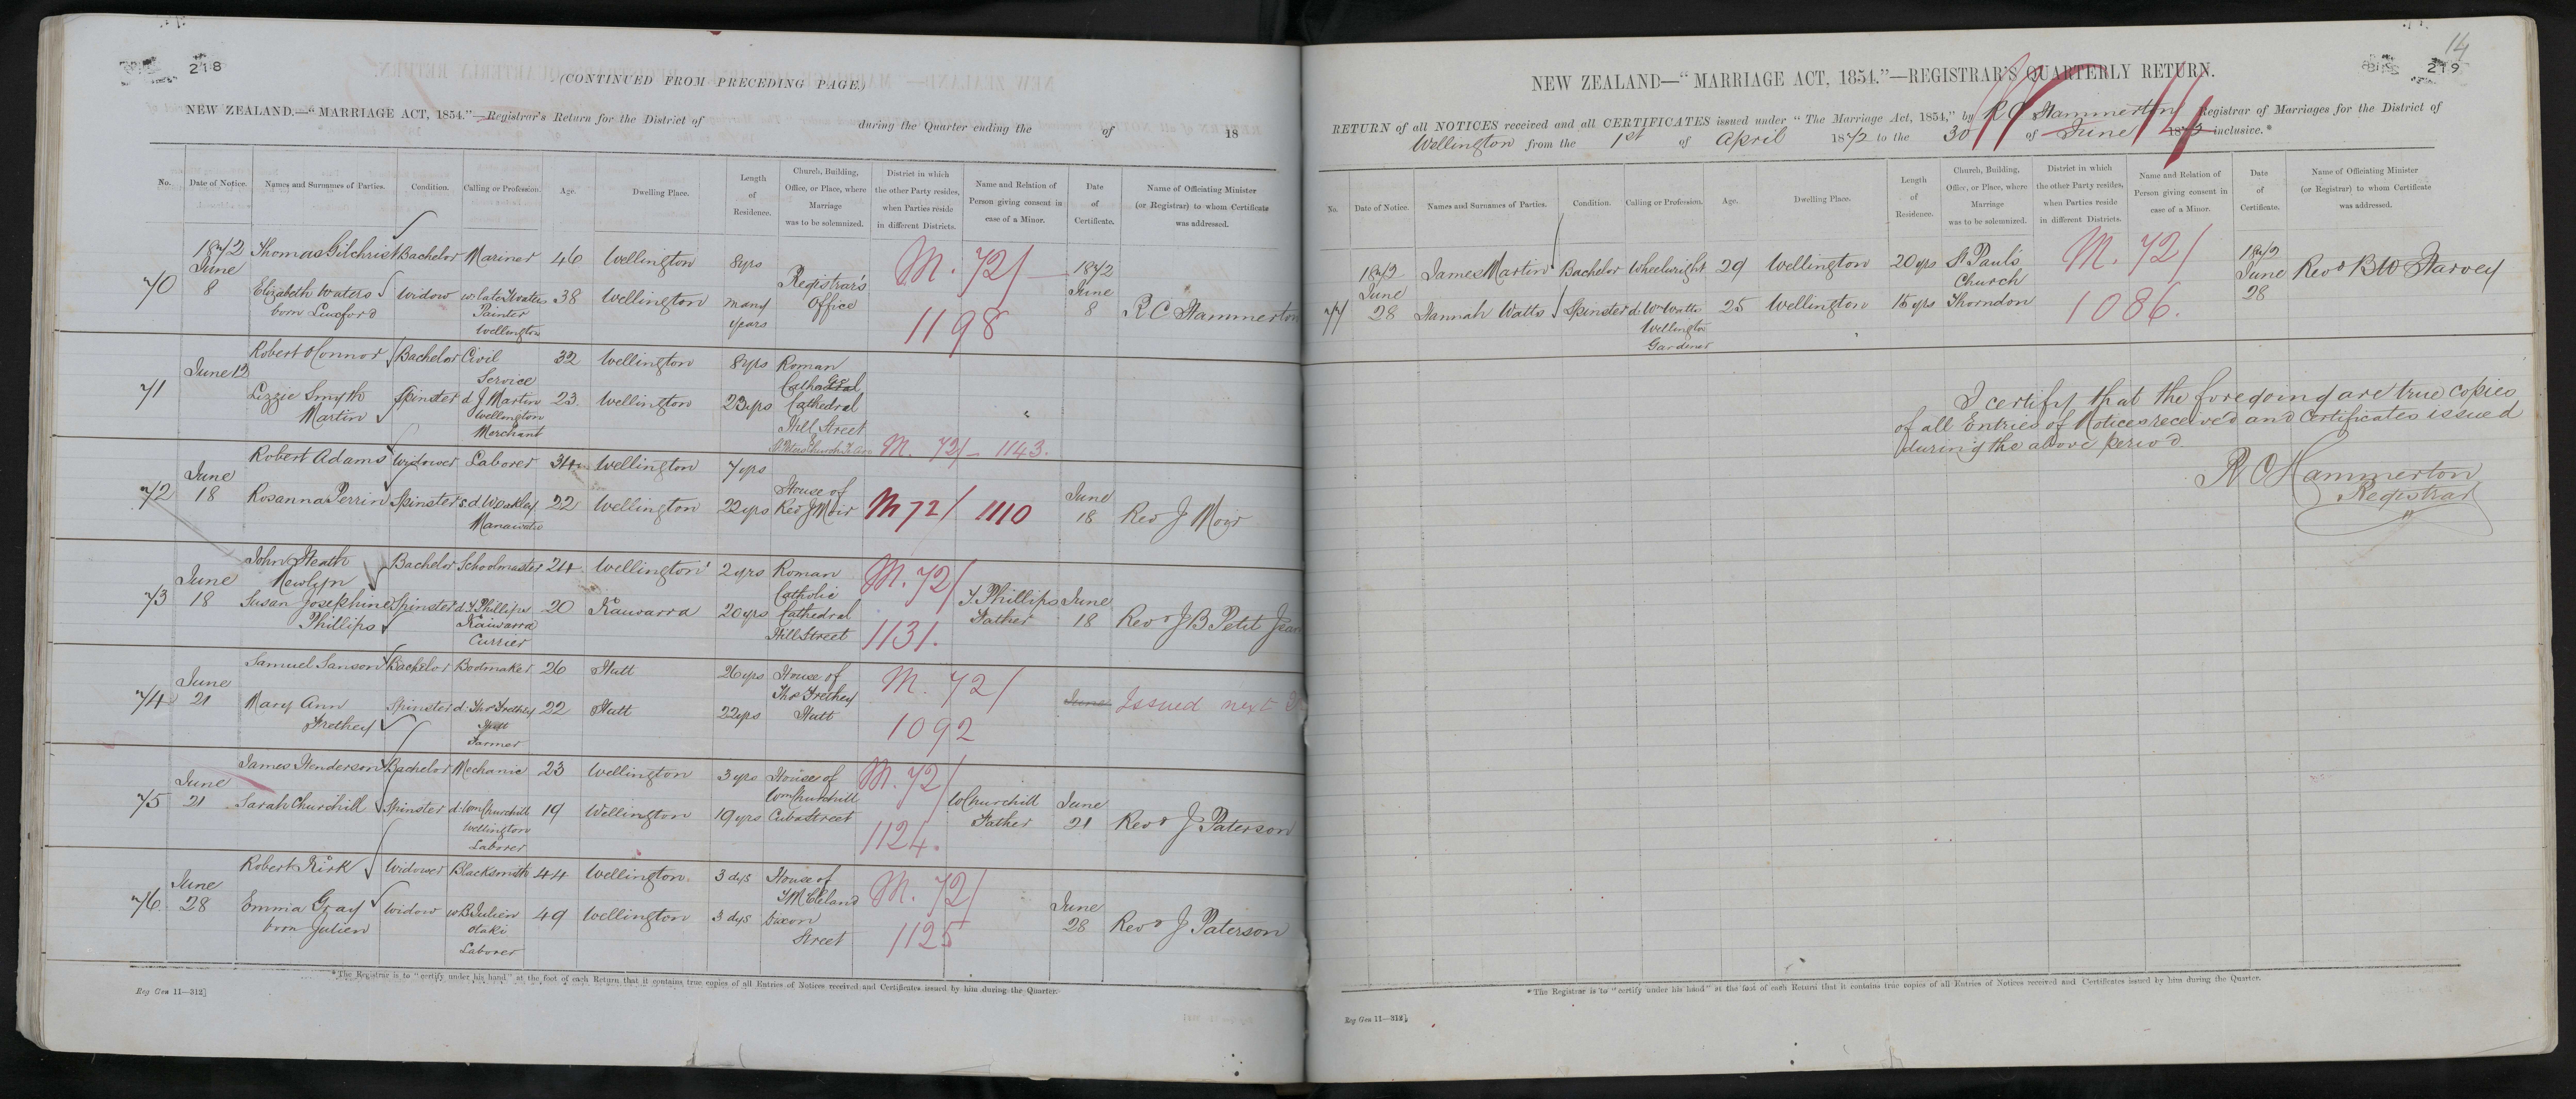 218
(CONTINUED FROM PRECEDING PAGE.)
NEW ZEALAND.—"MARRIAGE ACT, 1854."—Registrar's Return for the District of during the Quarter ending the of 18
No. Date of Notice. Names and Surnames of Parties. Condition. Calling or Profession. Age. Dwelling Place. Length of Residence. Church, Building, Office, or Place, where Marriage was to be solemnized. District in which the other Party resides, when Parties reside in different Districts. Name and Relation of Person giving consent in case of a Minor. Date of Certificate. Name of Officiating Minister (or Registrar) to whom Certificate was addressed.
70 1872 June 8 Thomas Gilchrist Bachelor Mariner 46 Wellington 8 yrs Registrar's Office M. 72/ 1198 1872 June 8 R C Hammerton
Elizabeth Waters born Luxford Widow w. late Waters Painter Wellington 38 Wellington many years
71 June 12 Robert O'Connor Bachelor Civil Service 32 Wellington 8 yrs Roman Cathedral Hill Street M. 72/ 1143.
Lizzie Smyth Martin Spinster d. J. Martin Wellington Merchant 23 Wellington 23 yrs
72 June 18 Robert Adams Widower Laborer 34 Wellington 7 yrs House of Rev J Moir M 72/ 1110 June 18 Rev J Moir
Rosanna Perrin Spinster Manawatu 22 Wellington 22 yrs
73 June 18 John Heath Newlyn Bachelor Schoolmaster 24 Wellington 2 yrs Roman Catholic Cathedral Hill Street M. 72/ 1131. Phillips Father June 18 Revd J B Petit Jean
Susan Josephine Phillips Spinster d. Phillips Kaiwarra Currier 20 Kaiwarra 20 yrs
74 June 21 Samuel Sanson Bachelor Bootmaker 26 Hutt 26 yrs House of Thos Frethey Hutt M. 72/ 1092 June Issued next
Mary Ann Frethey Spinster d. Thos Frethey Hutt Farmer 22 Hutt 22 yrs
75 June 21 James Henderson Bachelor Mechanic 23 Wellington 3 yrs House of Wm Churchill Cuba Street M. 72/ 1124. W Churchill Father June 21 Revd J Paterson
Sarah Churchill Spinster d. Wm Churchill Wellington Laborer 19 Wellington 19 yrs
76 June 28 Robert Kirk Widower Blacksmith 44 Wellington 3 dys House of McCleland Dixon Street M. 72/ 1125 June 28 Revd J Paterson
Emma Gray born Julien Widow Julien Otaki Laborer 49 Wellington 3 dys
* The Registrar is to "certify under his hand" at the foot of each Return that it contains true copies of all Entries of Notices received and Certificates issued by him during the Quarter.
Reg Gen 11—312]
14
219
NEW ZEALAND—"MARRIAGE ACT, 1854."—REGISTRAR'S QUARTERLY RETURN.
RETURN of all NOTICES received and all CERTIFICATES issued under "The Marriage Act, 1854," by R C Hammerton Registrar of Marriages for the District of
Wellington from the 1st of April 1872 to the 30 of June 1872 inclusive.*
No. Date of Notice. Names and Surnames of Parties. Condition. Calling or Profession. Age. Dwelling Place. Length of Residence. Church, Building, Office, or Place, where Marriage was to be solemnized. District in which the other Party resides, when Parties reside in different Districts. Name and Relation of Person giving consent in case of a Minor. Date of Certificate. Name of Officiating Minister (or Registrar) to whom Certificate was addressed.
77 1872 June 28 James Martin Bachelor Wheelwright 29 Wellington 20 yrs St Paul's Church Thorndon M. 72/ 1086. 1872 June 28 Revd B W Harvey
Hannah Watts Spinster d. Wm Watts Wellington Gardener 25 Wellington 15 yrs
I certify that the foregoing are true copies
of all Entries of Notices received and Certificates issued
during the above period
R C Hammerton
Registrar
* The Registrar is to "certify under his hand" at the foot of each Return that it contains true copies of all Entries of Notices received and Certificates issued by him during the Quarter.
Reg Gen 11—312]